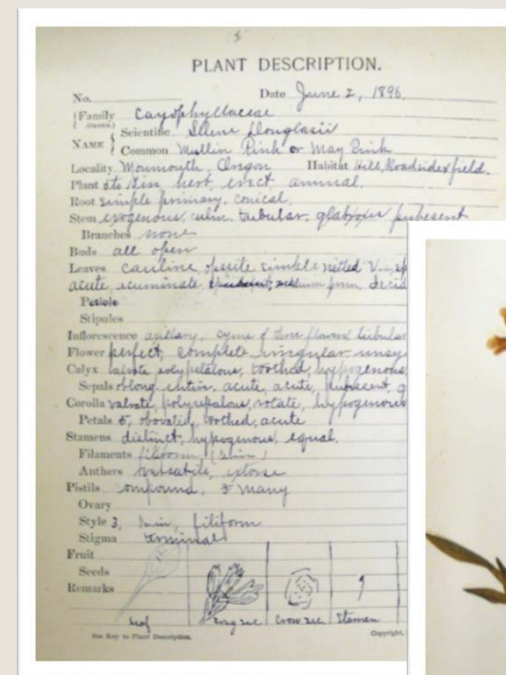 PLANT DESCRIPTION.
No. Date June 2, 1896.
Family Caryophyllaceae
Scientific Silene Douglasii
NAME
Common Mullin Pink or May Pink
Locality Monmouth, Oregon Habitat Hill, Roadside & field.
Plant 5 to 12 in herb, erect, annual.
Root simple primary, conical.
Stem exogenous, tubular, pubesent
Branches none
Buds all open
Leaves cauline, simple netted V.
acute, acuminate
Petiole
Stipules
Inflorescence axillary, cyme of flowers tubular
Flower perfect, complete
Calyx valvate polypetalous, toothed, hypogenous
Sepals oblong, entire, acute, acute, pubescent,
Corolla valvate, rotate, hypogenous
Petals 5, obovated, toothed, acute
Stamens distinct, hypogenous, equal.
Filaments filiform
Anthers versatile, extorse
Pistils compound, 3 many
Ovary
Style 3, filiform
Stigma terminal
Fruit
Seeds
Remarks
Leaf Long sec Cross sec Stamen
See Key to Plant Description. Copyright,